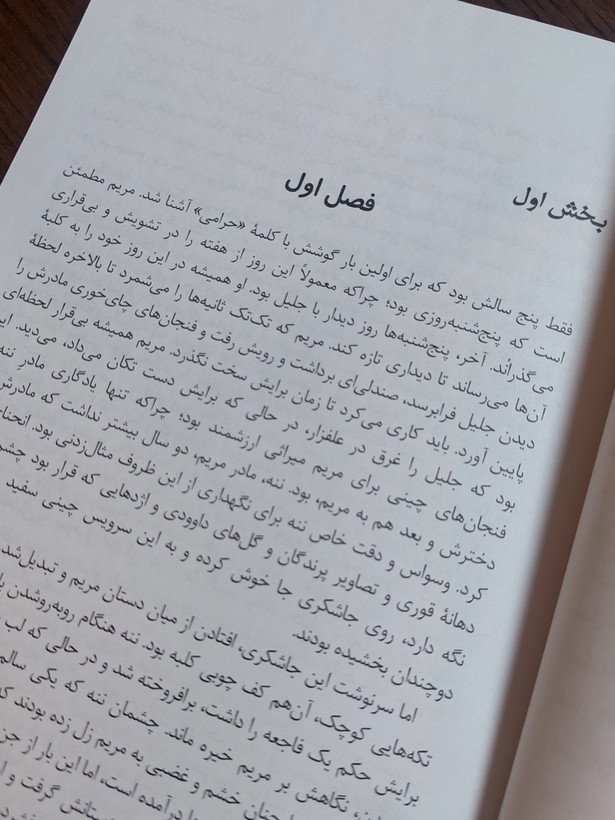 بخش اول
فصل اول
فقط پنج سالش بود که برای اولین بار گوشش با کلمهٔ «حرامی» آشنا شد. مریم مطمئن
است که پنج‌شنبه‌روزی بود؛ چراکه معمولاً این روز از هفته را در تشویش و بی‌قراری
می‌گذراند. آخر، پنج‌شنبه‌ها روز دیدار با جلیل بود. او همیشه در این روز خود را به کلبهٔ
آن‌ها می‌رساند تا دیداری تازه کند. مریم که تک‌تک ثانیه‌ها را می‌شمرد تا بالاخره لحظهٔ
دیدن جلیل فرابرسد، صندلی‌ای برداشت و رویش رفت و فنجان‌های چای‌خوری مادرش را
پایین آورد. باید کاری می‌کرد تا زمان برایش سخت نگذرد. مریم همیشه بی‌قرار لحظه‌ای
بود که جلیل را غرق در علفزار، در حالی که برایش دست تکان می‌داد، می‌دید. این
فنجان‌های چینی برای مریم میراثی ارزشمند بود؛ چراکه تنها یادگاری مادرِ ننه
دخترش و بعد هم به مریم، بود. ننه، مادر مریم، دو سال بیشتر نداشت که مادرش
کرد. وسواس و دقت خاص ننه برای نگهداری از این ظروف مثال‌زدنی بود. انحنا
دهانهٔ قوری و تصاویر پرندگان و گل‌های داوودی و اژدهایی که قرار بود چشم
نگه دارد، روی جاشکری جا خوش کرده و به این سرویس چینی سفید
دوچندان بخشیده بودند.
اما سرنوشت این جاشکری، افتادن از میان دستان مریم و تبدیل‌شد
تکه‌هایی کوچک، آن‌هم کف چوبی کلبه بود. ننه هنگام روبه‌روشدن با
برایش حکم یک فاجعه را داشت، برافروخته شد و در حالی که لب
نگاهش بر مریم خیره ماند. چشمان ننه که یکی سالم
چنان خشم و غضبی به مریم زل زده بودند که
درآمده است، اما این بار از جز
ستانش گرفت و